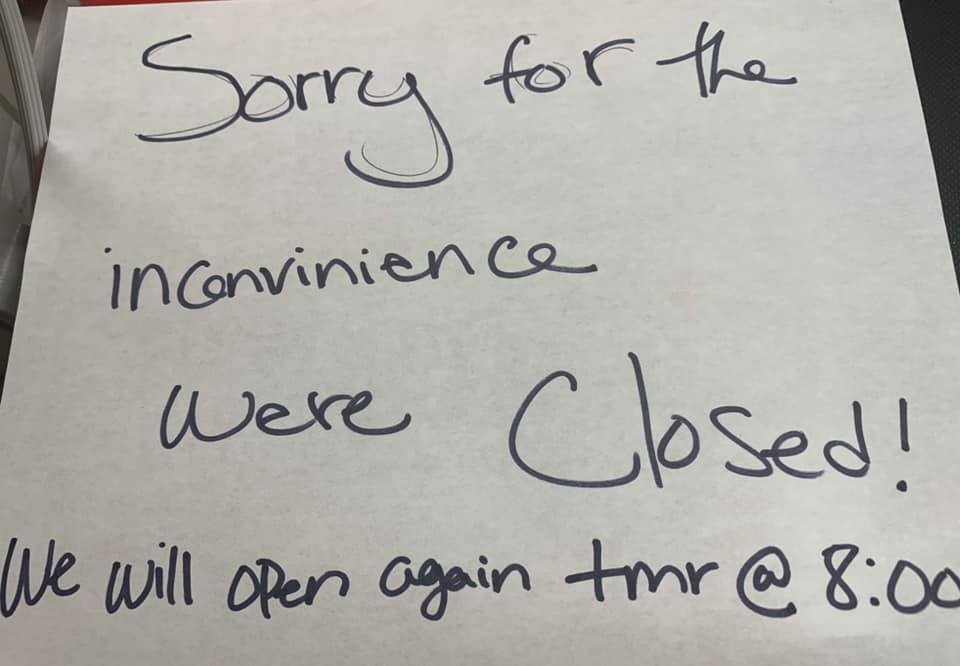 Sorry for the
inconvinience
were Closed!
We will open again tmr @ 8:00